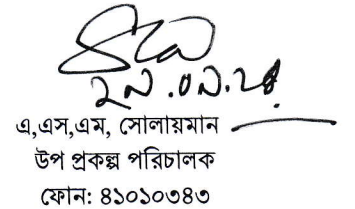 ২৯.০৯.২৪
এ,এস,এম, সোলায়মান
উপ প্রকল্প পরিচালক
ফোন: ৪১০১০৩৪৩